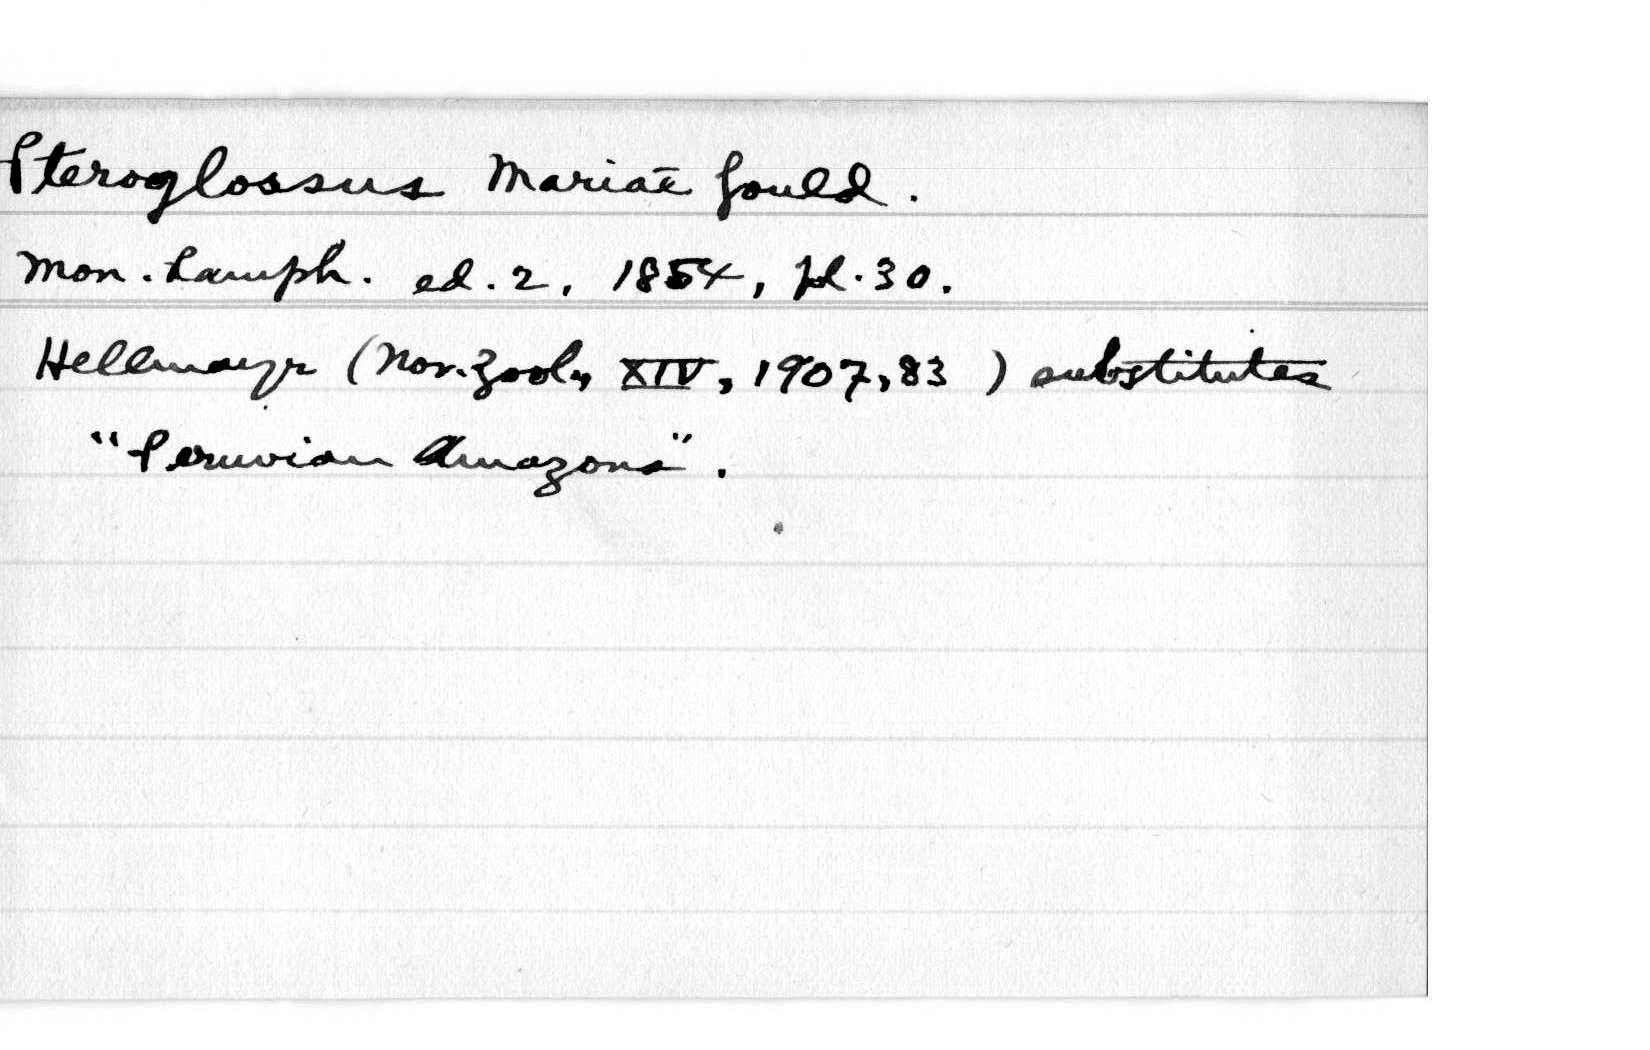 Pteroglossus Mariae Gould.
Mon. Ramph. ed. 2, 1854, pl. 30.
Hellmayr (Nov. Zool., XIV, 1907, 83 ) substitutes
"Peruvian Amazons".